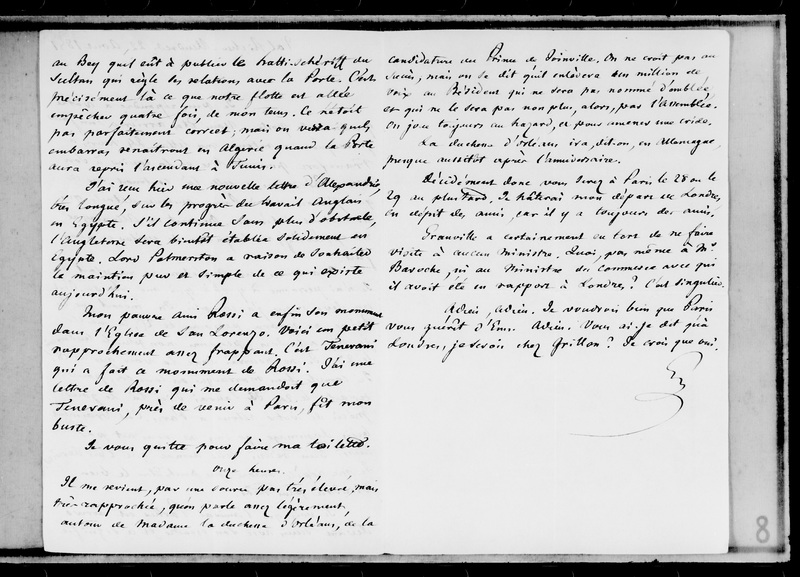 au Bey qu'il eût à publier le hatti-schériff du
Sultan qui règle ses relations avec la Porte. C'est
précisément là ce que notre flotte est allée
empêcher quatre fois, de mon tems. Ce n'étoit
pas parfaitement correct; mais on verra quels
embarras renaîtront en Algérie quand la Porte
aura repris l'ascendant à Tunis.
J'ai reçu hier une nouvelle lettre d'Alexandrie,
très longue, sur les progrès du travail Anglais
en Egypte. S'il continue sans plus d'obstacle,
l'Angleterre sera bientôt établie solidement en
Egypte. Lord Palmerston a raison de souhaiter
le maintien pur et simple de ce qui existe
aujourd'hui.
Mon pauvre ami Rossi a enfin son monument
dans l'Eglise de San Lorenzo. Voici un petit
rapprochement assez frappant. C'est Tenerani
qui a fait ce monument de Rossi. J'ai une
lettre de Rossi qui me demandoit que
Tenerani, près de venir à Paris, fît mon
buste.
Je vous quitte pour faire ma toilette.
Onze heures.
Il me revient, par une source pas très élevée, mais
très rapprochée, qu'on parle assez légèrement,
autour de Madame la duchesse d'Orléans, de la
candidature du Prince de Joinville. On ne croit pas au
succès; mais on se dit qu'il enlèvera un million de
voix au Président qui ne sera pas nommé d'emblée,
et qui ne le sera pas non plus, alors, par l'Assemblée.
On joue toujours au hazard, et pour amener une crise.
La duchesse d'Orléans ira, dit-on, en Allemagne,
presque aussitôt après l'anniversaire.
Décidément donc vous serez à Paris le 28 ou le
29 au plus tard. Je hâterai mon départ de Londres,
en dépit des amis, car il y a toujours des amis.
Granville a certainement eu tort de ne faire
visite à aucun ministre. Quoi, pas même à Mr
Baroche, ni au Ministre du commerce avec qui
il avoit été en rapport à Londres? C'est singulier.
Adieu, Adieu. Je voudrois bien que Paris
vous guérît d'Ems. Adieu. Vous ai-je dit qu'à
Londres, je serois chez Grillon? Je crois que oui.
8